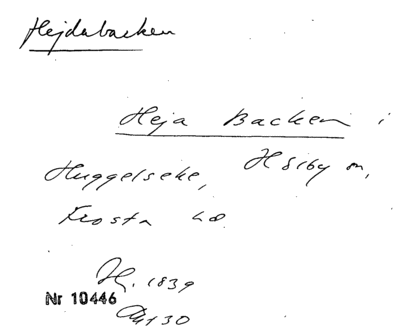 Hejdabacken
Heja Backen i
Huggelseke, Hörby sn,
Frosta hd
1839
Nr 10446
130